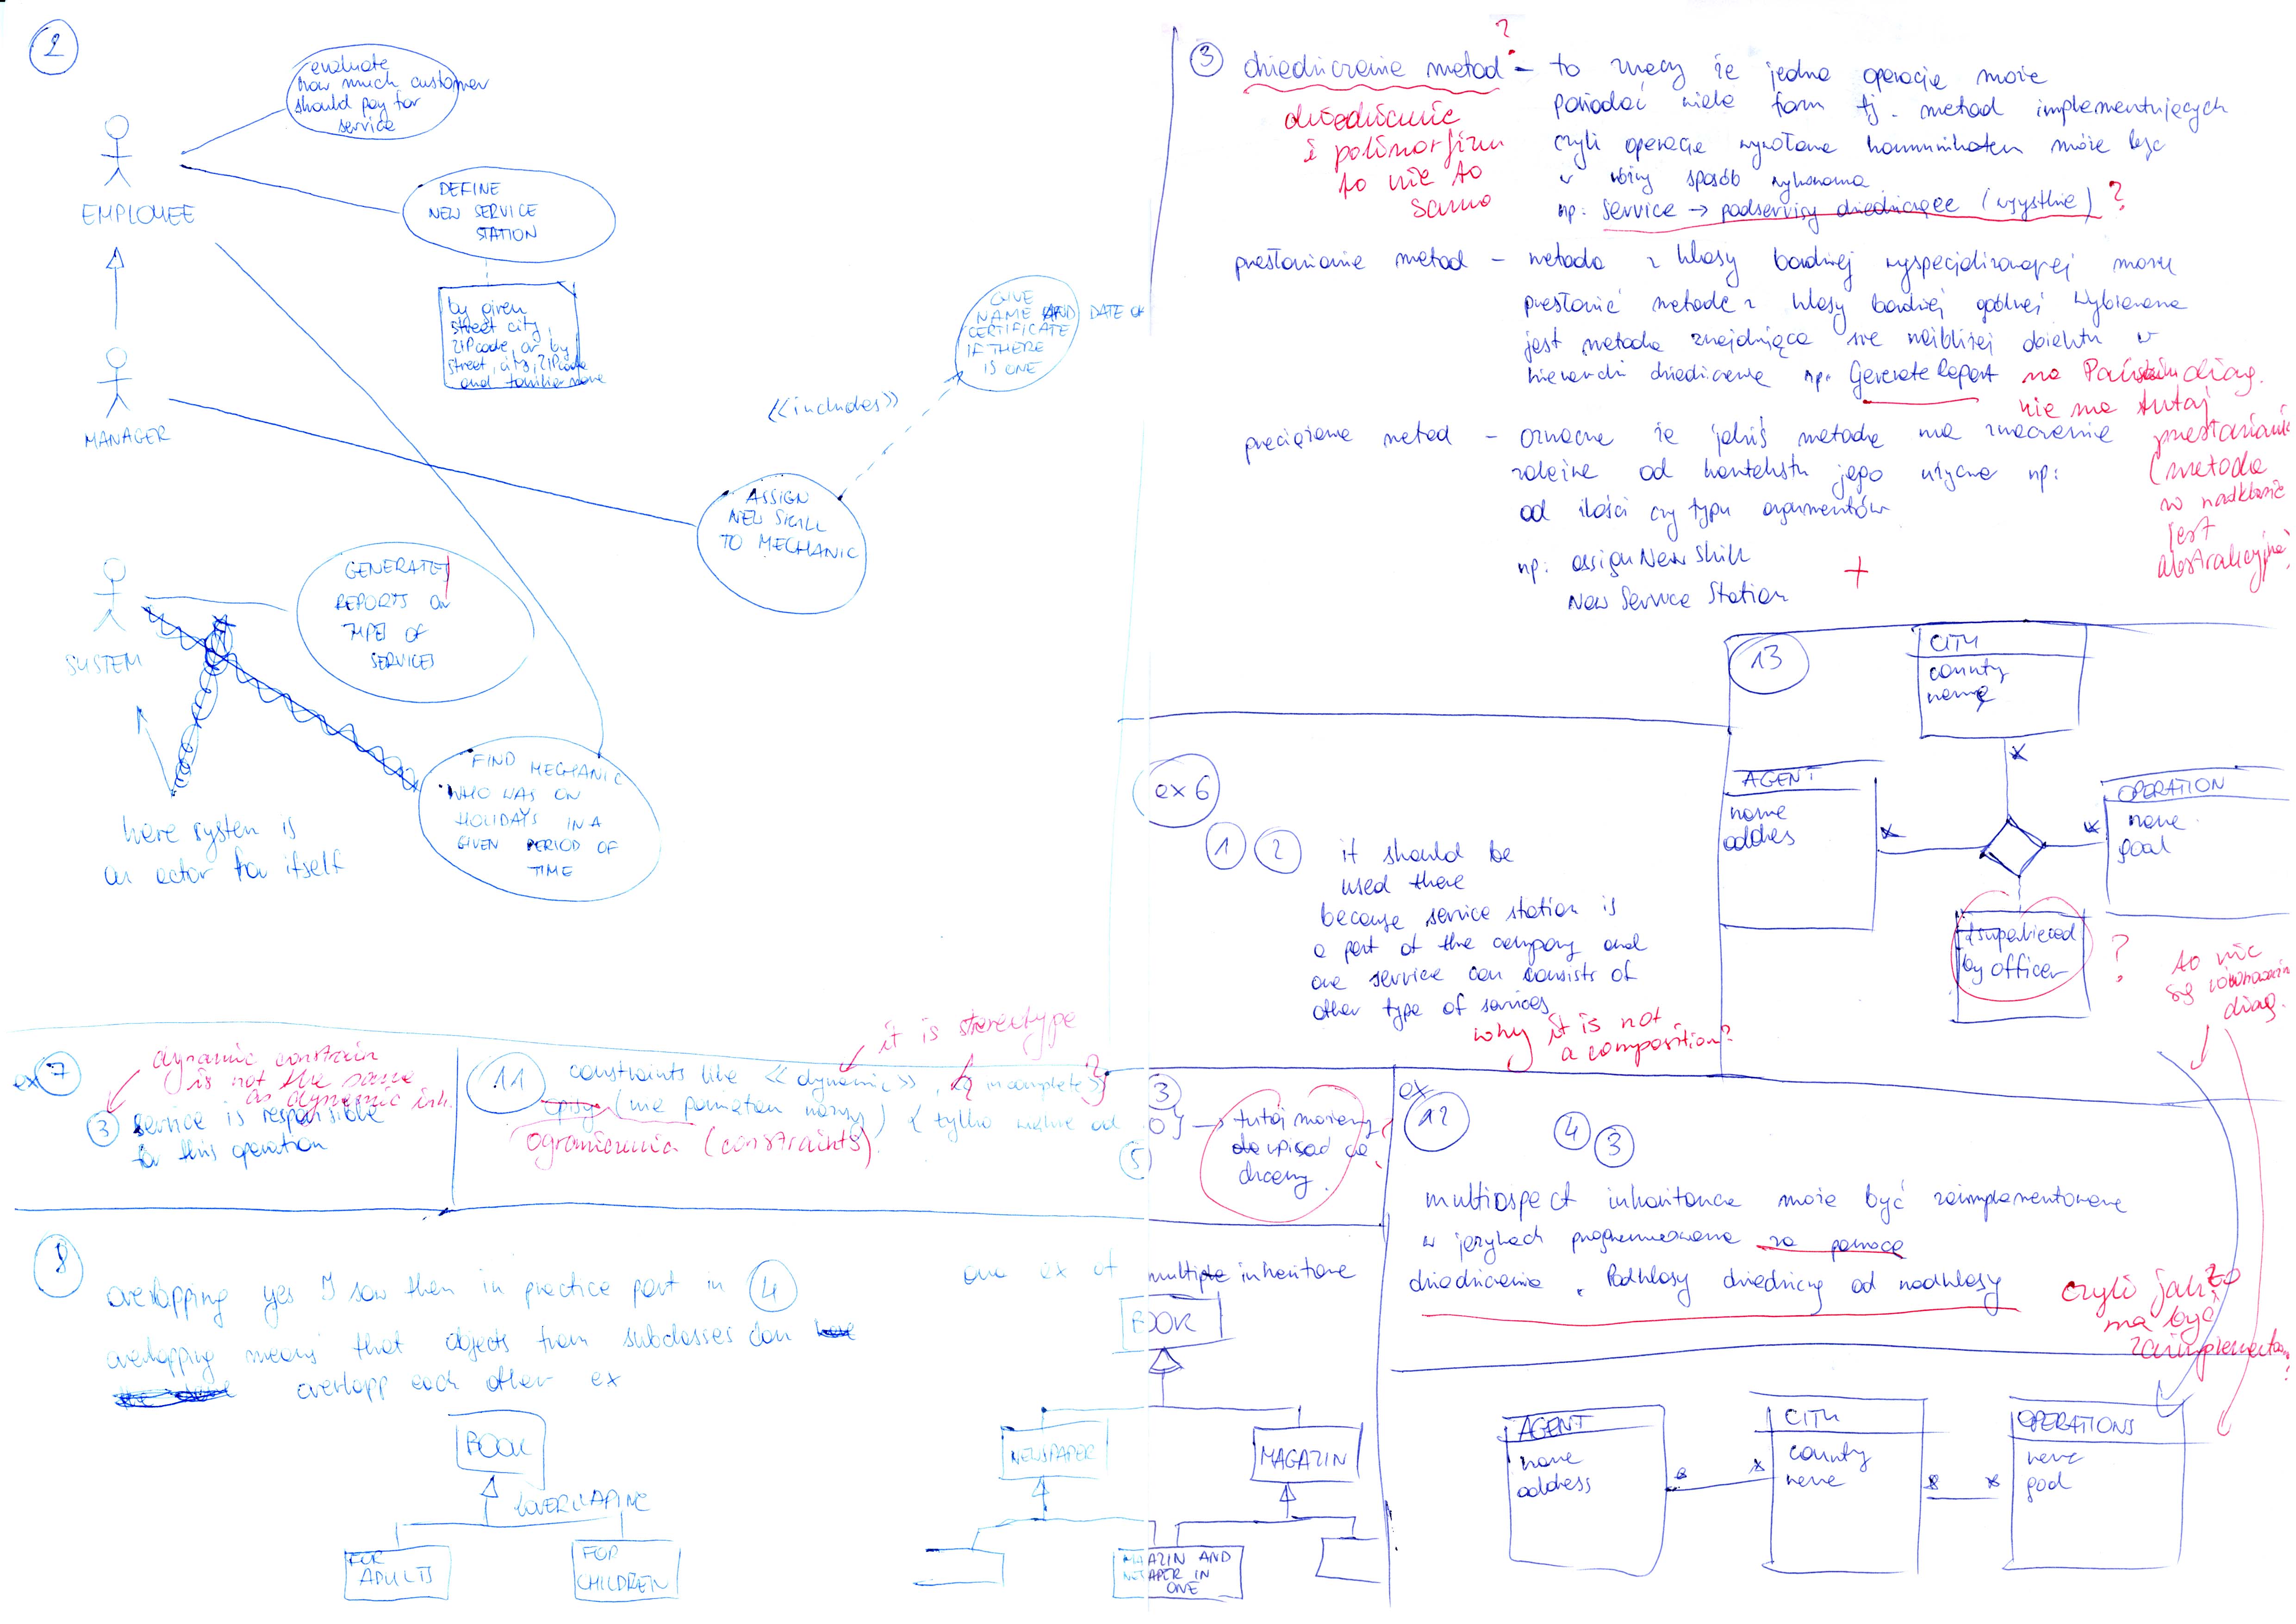 2
evaluate
how much customer
should pay for
service
EMPLOYEE
DEFINE
NEW SERVICE
STATION
by given
street city,
ZIP code, or by
street, city, ZIP code
and
MANAGER
GIVE
NAME AND DATE OF
CERTIFICATE
IF THERE
IS ONE
<<includes>>
ASSIGN
NEW SKILL
TO MECHANIC
SYSTEM
GENERATE
REPORTS ON
TYPES OF
SERVICES
FIND MECHANIC
WHO WAS ON
HOLIDAYS IN A
GIVEN PERIOD OF
TIME
here system is
an actor for itself
3 dziedziczenie metod ? - to znaczy że jedna operacja może
posiadać wiele form tj. metod implementujących
czyli operacja wywołana komunikatem może być
w różny sposób wykonana
np: service → podserwisy dziedziczące (wszystkie) ?
dziedziczenie
i polimorfizm
to nie to
samo
przesłanianie metod - metoda z klasy bardziej wyspecjalizowanej może
przesłonić metodę z klasy bardziej ogólnej Wybierana
jest metoda znajdująca się najbliżej obiektu w
hierarchi dziedziczenia np. Generate Report
na Pańskim diag.
nie ma tutaj
przesłaniania
(metoda
w nadklasie
jest
abstrakcyjna
przeciążanie metod - oznacza że jakaś metoda ma znaczenie
zależne od kontekstu jego użycia np:
od ilości czy typu argumentów
np: assignNewSkill
New Service Station
+
13
CITY
county
name
AGENT
name
address
OPERATION
name
goal
supervised
by officer
?
to nie
są równoważne
diag.
ex 6
1 2 it should be
used there
because service station is
a part of the company and
one service can consists of
other type of services
why it is not
a composition?
ex 7
dynamic constrain
is not the same
as dynamic inh.
3 service is responsible
for this operation
11 constraints like <<dynamic>>, { incomplete }
it is stereotype
?
opisy (nie pamiętam nazwy) { tylko
ograniczenia (constraints)
3
5
→ tutaj możemy
wpisać co
chcemy.
ex
12
4 3
multiaspect inheritance może być zaimplementowane
w językach programowania za pomocą
dziedziczenia. Podklasy dziedziczą od nadklasy
czyli jak to
ma być
zaimplementowane
?
8
overlapping yes I saw them in practice part in 4
overlapping means that objects from subclasses can
overlapp each other ex
BOOK
OVERLAPING
FOR
ADULTS
FOR
CHILDREN
one ex of multiple inheritance
BOOK
NEWSPAPER
MAGAZIN
MAGAZIN AND
IN
ONE
AGENT
name
address
CITY
county
name
OPERATIONS
name
goal